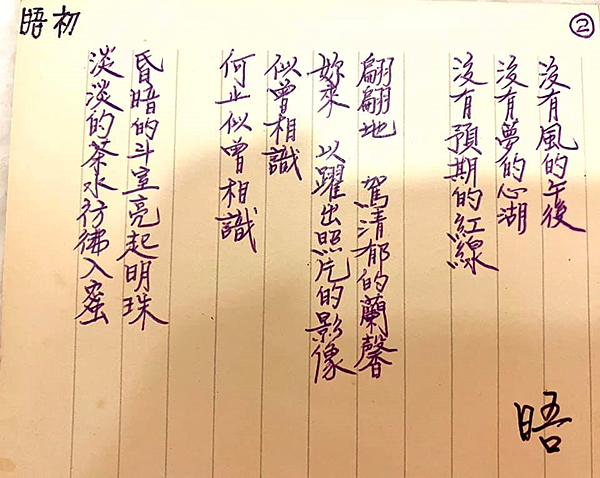 ②
初晤
沒有風的午後
沒有夢的心湖
沒有預期的紅線
翩翩地 駕清郁的蘭馨
妳來 以躍出照片的影像
似曾相識
何止似曾相識
昏暗的斗室亮起明珠
淡淡的茶水彷彿入蜜
晤